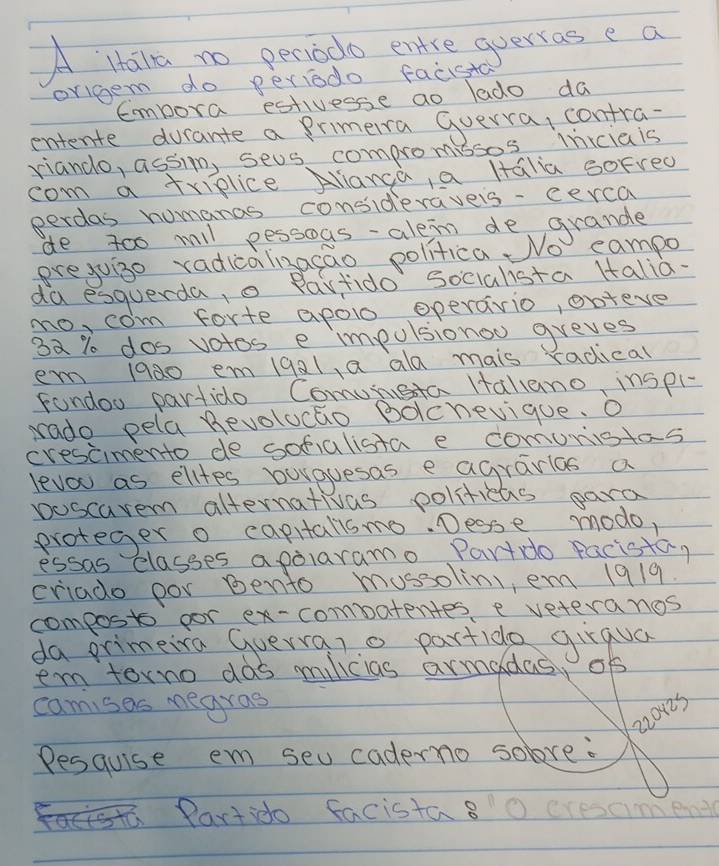 A itália no período entre guerras e a
origem do período facista
Embora estivesse ao lado da
entente durante a Primeira Guerra, contra-
riando, assim, seus compromissos iniciais
com a tríplice Aliança, a Itália sofreu
perdas humanas consideráveis - cerca
de 700 mil pessoas - além de grande
prejuízo radicalização política. No campo
da esquerda, o Partido Socialista Italia-
no, com forte apoio operário, obteve
32% dos votos e impulsionou greves
em 1920 em 1921, a ala mais radical
fundou partido Comunista Italiano, inspi-
rado pela Revolução Bolchevique. O
crescimento de sofialista e comunistas
levou as elites burguesas e agrárias a
buscarem alternativas políticas para
proteger o capitalismo. Desse modo,
essas classes apoiaram o Partido Facista,
criado por Bento Mussolini, em 1919.
composto por ex-combatentes e veteranos
da primeira Guerra, o partido girava
em torno das milícias armadas, os
camisas negras
220425
Pesquise em seu caderno sobre:
Facista Partido facista: "O crescimento